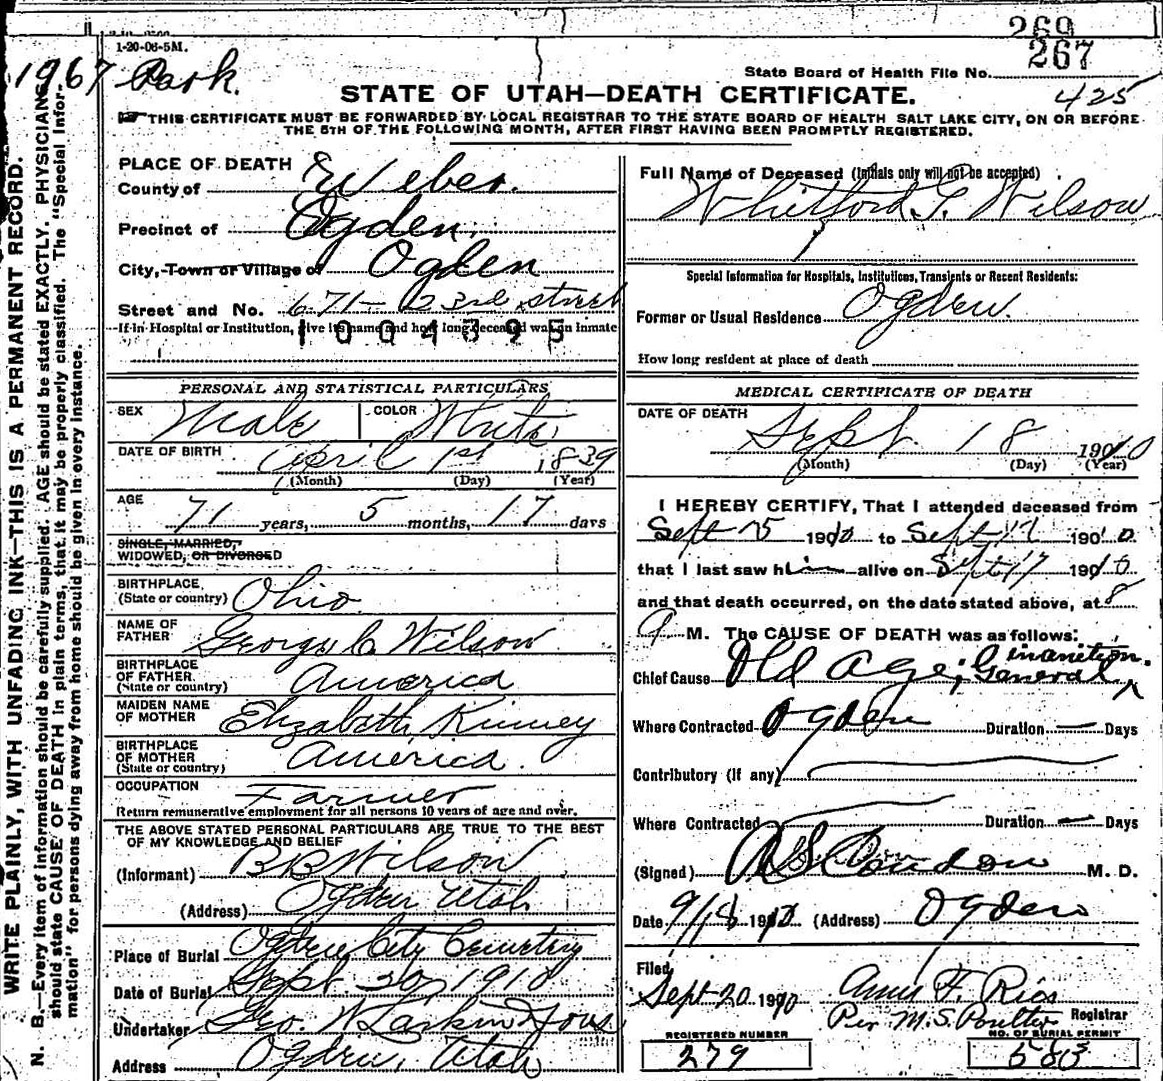 269
267
1-20-06-5M.
1967 Park.
State Board of Health File No.
425
STATE OF UTAH—DEATH CERTIFICATE.
THIS CERTIFICATE MUST BE FORWARDED BY LOCAL REGISTRAR TO THE STATE BOARD OF HEALTH SALT LAKE CITY, ON OR BEFORE
THE 5TH OF THE FOLLOWING MONTH, AFTER FIRST HAVING BEEN PROMPTLY REGISTERED.
WRITE PLAINLY, WITH UNFADING INK—THIS IS A PERMANENT RECORD.
N. B.—Every item of information should be carefully supplied. AGE should be stated EXACTLY. PHYSICIANS
should state CAUSE OF DEATH in plain terms, that it may be properly classified. The "Special Infor-
mation" for persons dying away from home should be given in every instance.
PLACE OF DEATH
County of Weber.
Precinct of Ogden.
City, Town or Village of Ogden
Street and No. 671- 23rd street
If in Hospital or Institution, give its name and how long deceased was an inmate
1004395
PERSONAL AND STATISTICAL PARTICULARS
SEX Male COLOR White
DATE OF BIRTH April 1st 1839
(Month) (Day) (Year)
AGE 71 years, 5 months, 17 days
SINGLE, MARRIED,
WIDOWED, OR DIVORCED
BIRTHPLACE,
(State or country) Ohio
NAME OF
FATHER George C Wilson
BIRTHPLACE
OF FATHER.
(State or country) America
MAIDEN NAME
OF MOTHER Elizabeth Kinney
BIRTHPLACE
OF MOTHER
(State or country) America.
OCCUPATION Farmer
Return remunerative employment for all persons 10 years of age and over.
THE ABOVE STATED PERSONAL PARTICULARS ARE TRUE TO THE BEST
OF MY KNOWLEDGE AND BELIEF
(Informant) BB Wilson
(Address) Ogden Utah
Place of Burial Ogden City Cemetery
Date of Burial Sept 20, 1910
Undertaker Geo. W Larkin Sons
Address Ogden, Utah
Full Name of Deceased (Initials only will not be accepted)
Whitford G. Wilson
Special Information for Hospitals, Institutions, Transients or Recent Residents:
Former or Usual Residence Ogden.
How long resident at place of death
MEDICAL CERTIFICATE OF DEATH
DATE OF DEATH
Sept. 18 1910
(Month) (Day) (Year)
I HEREBY CERTIFY, That I attended deceased from
Sept 1910 to Sept 17 1910
that I last saw him alive on Sept 17 1910
and that death occurred, on the date stated above, at 8
M. The CAUSE OF DEATH was as follows:
Chief Cause Old age; General inanition.
Where Contracted Ogden Duration — Days
Contributory (If any)
Where Contracted Duration — Days
(Signed) Condon M. D.
Date 9/18 1910 (Address) Ogden
Filed
Sept 20 1910 F. Rice
Per M.S. Poulter Registrar
REGISTERED NUMBER
279
NO. OF BURIAL PERMIT